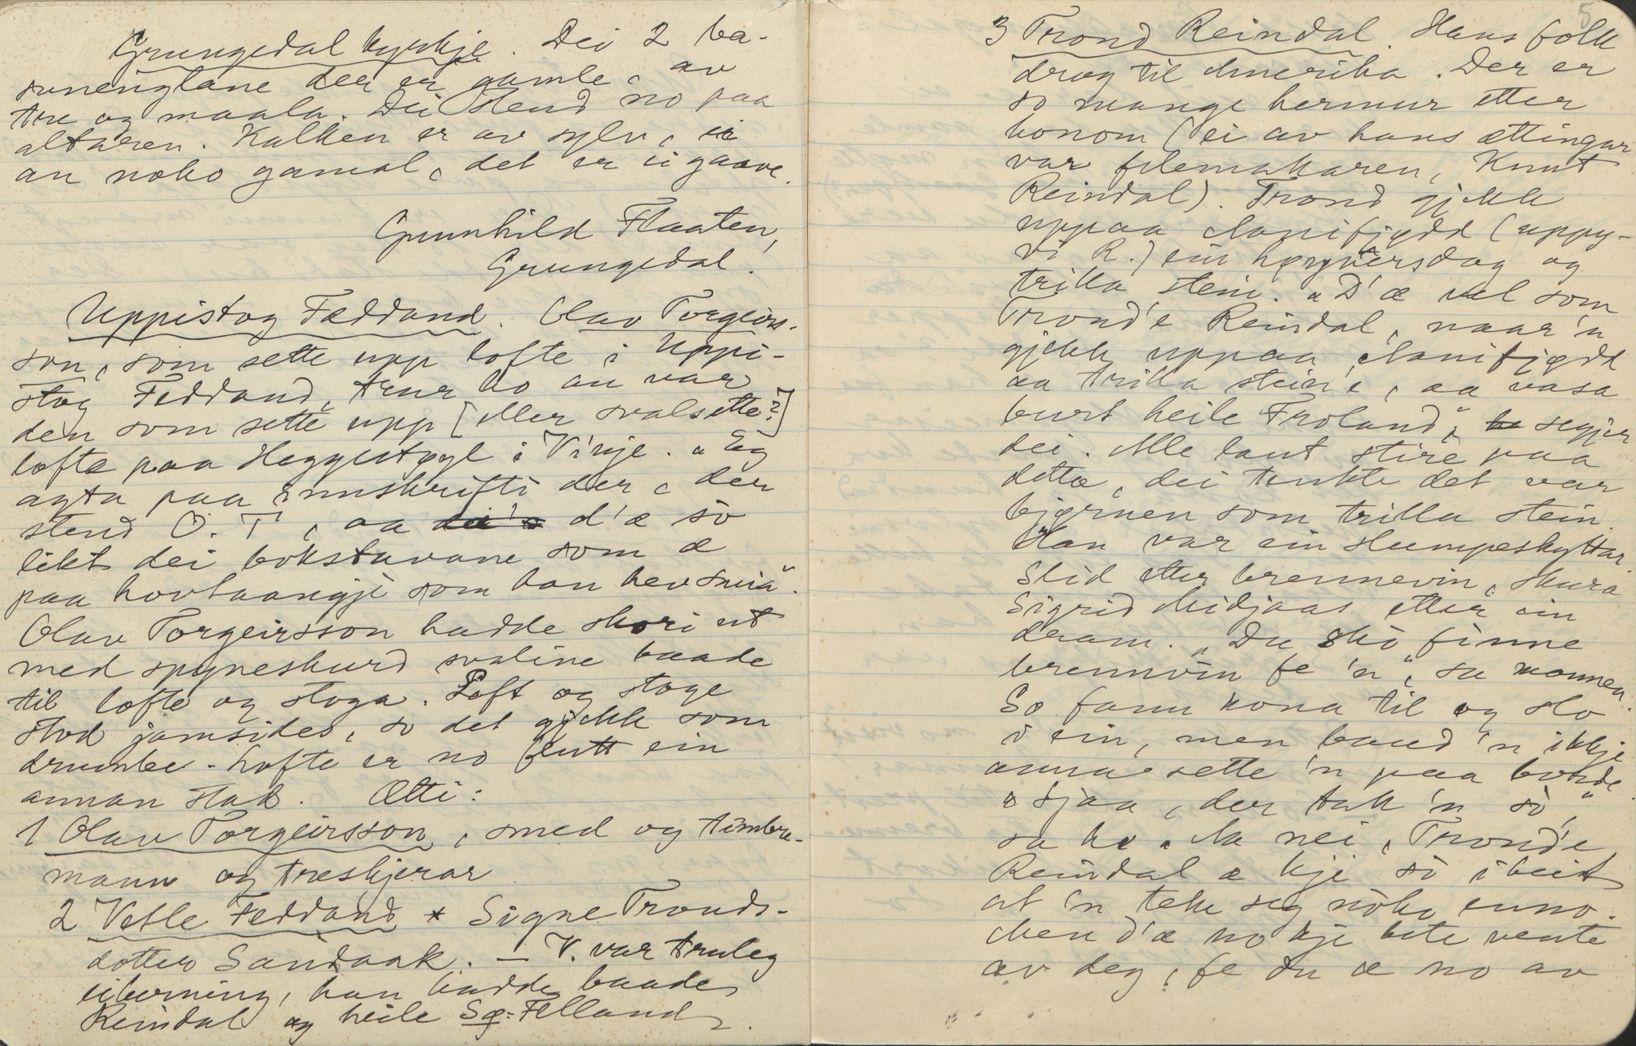 Grungedal kyrkje. Dei 2 ba-
sunenglane der er gamle, av
tre og maala. Dei stend no paa
altaren. Kalken er av sylv, ei
an noko gamal, det er ei gaave.
Gunnhild Flaaten,
Grungedal.
Uppistog Feddand. Olav Torgeirs-
son, som sette upp lofte i Uppi-
stog Feddand, trur ho an var
den som sette upp [eller svalsette?]
lofte paa Haggestøyl i Vinje. "Eg
agta paa innskrifti der, der
stend O. T, aa d'æ so
likt dei bokstavane som æ
paa hovtaangji som han hev smia".
Olav Torgeirsson hadde skori ut
med spyneskurd svaline baade
til lofte og stoga. Loft og stoge
stod jamsides, so det gjekk som
drumbe. Lofte er no flutt ein
annan stad. Ætti:
1 Olav Torgeirsson, smed og timbre-
mann og treskjerar
2 Vetle Feddand * Signe Tronds-
dotter Sandaak. — V. var truleg
eiberning, han hadde baade
Reindal og heile Sø-Felland.
5
3 Trond Reindal. Hans folk
drog til Amerika. Der er
so mange hermur etter
honom (ei av hans ættingar
var felemakaren, Knut
Reindal). Trond gjekk
uppaa Nanifjødd (uppy-
vi R.) ein høysversdag og
trilla stein. "D'æ vel som
Trond'e Reindal, naar 'n
gjekk uppaa Nanifjødd
aa trilla stein'e, aa vasa
burt heile Froland", segjer
dei. Alle laut stire paa
detta, dei tenkte det var
bjørnen som trilla stein.
Han var ein slumpeskyttar.
Slid etter brennevin, skura
Sigrid Midjaas etter ein
dram. "Du sko finne
brennvin fe 'n", sa mannen.
So fann kona til og slo
i ein, men baud 'n ikkje
anna sette 'n paa borde.
"Sjaa, der tak 'n so",
sa ho. "Na nei, Trond'e
Reindal æ kje so i beit
at 'n teke seg noko enno.
Men d'æ no kje bete vente
av deg, fe du æ no av